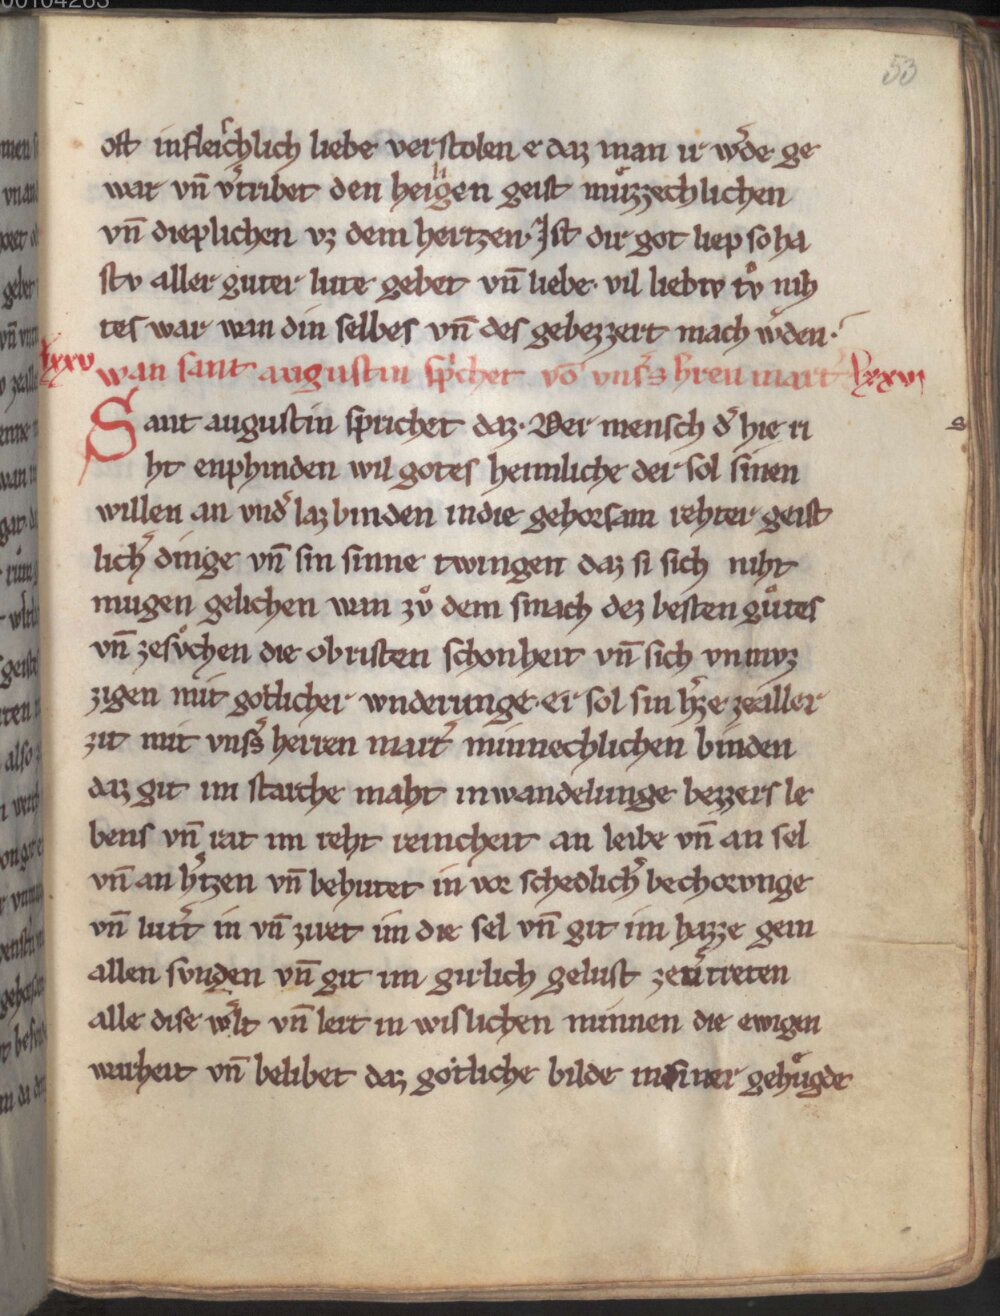 53
oft in fleischlich liebe verstolen e daz man ir wͤde ge
war vn̄ vͤtribet den heiligen geist mu̇zzechlichen
vn̄ dieplichen vz dem hertzen. Ist dir got liep so ha
stv aller guter lute gebet vn̄ liebe. vil liebiv tv̊ nih
tes war wan din selbes vn̄ des gebezzert mach wͤden.
lxxv wan sant augustin sp̄chet vō vnsͤs hͤren martͤ lxxvi
Sant augustin sprichet daz. Der mensch dͤ hie ri
ht enphinden wil gotes heimliche der sol sinen
willen an vndͤ laz binden in die gehorsam rehter geist
lichͤ dinge vn̄ sin sinne twingen daz si sich niht
mugen gelichen wan zv̊ dem smach dez besten gůtes
vn̄ ze sv̊chen die obristen schonheit vn̄ sich vnmvz
zigen mit gotlicher wnderunge. er sol sin hͤze ze aller
zit mit vnsͤs herren martͤ minnechlichen binden
daz git im starche maht in wandelunge bezzers le
bens vn̄ rat im reht reincheit an leibe vn̄ an sel
vn̄ an hͤtzen vn̄ behutet in vor schedlichͤ bechorvnge
vn̄ lutͤt in vn̄ ziret im die sel vn̄ git im hazze gein
allen svnden vn̄ git im girlich gelust ze vͤtreten
alle dise wͤlt vn̄ leit in wislichen minnen die ewigen
warheit vn̄ belibet daz gotliche bilde in siner gehůgde